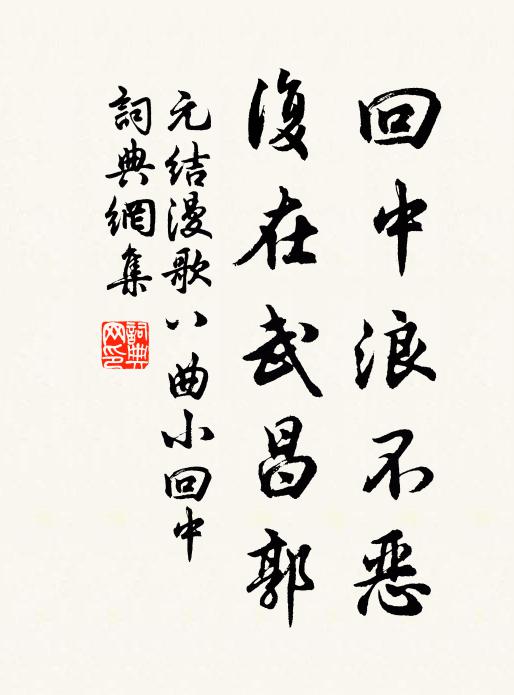 回中浪不恶
復在武昌郭
元结漫歌八曲小回中
詞典網集
詞典网印